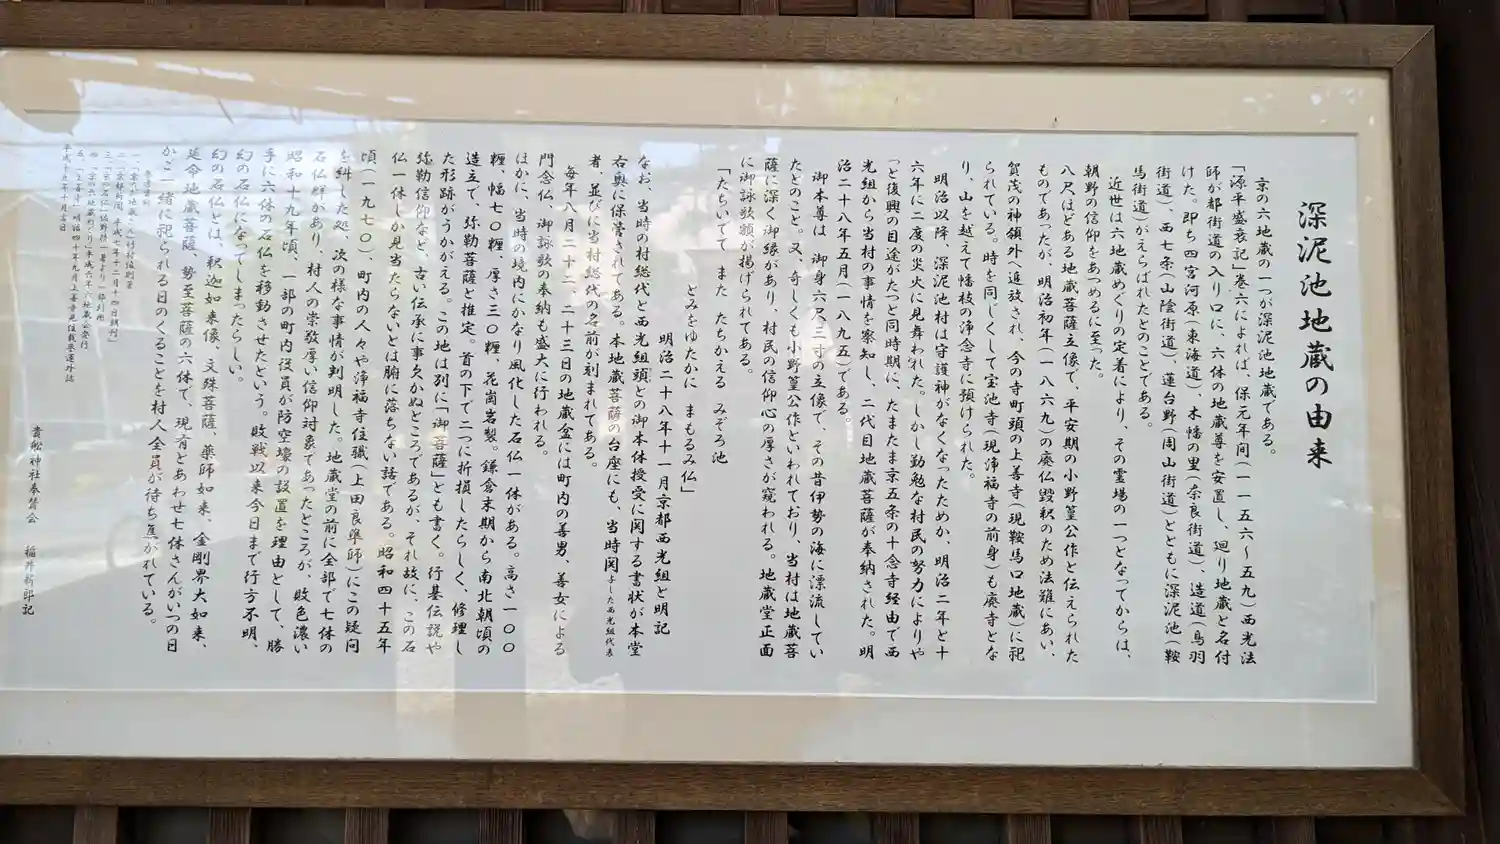 深泥池地蔵の由来
京の六地蔵の一つが深泥池地蔵である。
「源平盛衰記」巻六によれば、保元年間(一一五六〜五九)西光法
師が都街道の入り口に、六体の地蔵尊を安置し、廻り地蔵と名付
けた。即ち四宮河原(東海道)、木幡の里(奈良街道)、造道(鳥羽
街道)、西七条(山陰街道)、蓮台野(周山街道)とともに深泥池(鞍
馬街道)がえらばれたとのことである。
近世は六地蔵めぐりの定着により、その霊場の一つとなってからは、
朝野の信仰をあつめるに至った。
八尺ほどある地蔵菩薩立像で、平安期の小野篁公作と伝えられた
ものであったが、明治初年(一八六九)の廃仏毀釈のため法難にあい、
賀茂の神領外へ追放され、今の寺町頭の上善寺(現鞍馬口地蔵)に祀
られている。時を同じくして宝池寺(現浄福寺の前身)も廃寺とな
り、山を越えて幡枝の浄念寺に預けられた。
明治以降、深泥池村は守護神がなくなったためか、明治二年と十
六年に二度の災火に見舞われた。しかし勤勉な村民の努力によりや
っと復興の目途がたつと同時期に、たまたま京五条の十念寺経由で西
光組から当村の事情を察知し、二代目地蔵菩薩が奉納された。明
治二十八年五月(一八九五)である。
御本尊は、御身六尺三寸の立像で、その昔伊勢の海に漂流してい
たとのこと。又、奇しくも小野篁公作といわれており、当村は地蔵菩
薩に深く御縁があり、村民の信仰心の厚さが窺われる。地蔵堂正面
に御詠歌額が掲げられてある。
「たちいでて また たちかえる みぞろ池
とみをゆたかに まもるみ仏」
明治二十八年十一月京都西光組と明記
なお、当時の村総代と西光組頭との御本体授受に関する書状が本堂
右奥に保管されてある。本地蔵菩薩の台座にも、当時関与した西光組代表
者、並びに当村総代の名前が刻まれてある。
毎年八月二十二、二十三日の地蔵盆には町内の善男、善女による
門念仏、御詠歌の奉納も盛大に行われる。
ほかに、当時の境内にかなり風化した石仏一体がある。高さ一〇〇
糎、幅七〇糎、厚さ三〇糎、花崗岩製。鎌倉末期から南北朝頃の
造立で、弥勒菩薩と推定。首の下で二つに折損したらしく、修理し
た形跡がうかがえる。この地は別に「御菩薩」とも書く。行基伝説や
弥勒信仰など、古い伝承に事欠かぬところであるが、それ故に、この石
仏一体しか見当たらないとは腑に落ちない話である。昭和四十五年
頃(一九七〇)、町内の人々や浄福寺住職(上田良準師)にこの疑問
を糾した処、次の様な事情が判明した。地蔵堂の前に全部で七体の
石仏群があり、村人の崇敬厚い信仰対象であったところが、敗色濃い
昭和十九年頃、一部の町内役員が防空壕の設置を理由として、勝
手に六体の石仏を移動させたという。敗戦以来今日まで行方不明、
幻の石仏になってしまったらしい。
幻の石仏とは、釈迦如来像、文殊菩薩、薬師如来、金剛界大如来、
延命地蔵菩薩、勢至菩薩の六体で、現存とあわせ七体さんがいつの日
かご一緒に祀られる日のくることを村人全員が待ち焦がれている。
平成十五年十月吉日
貴船神社奉賛会 稲井新郎記